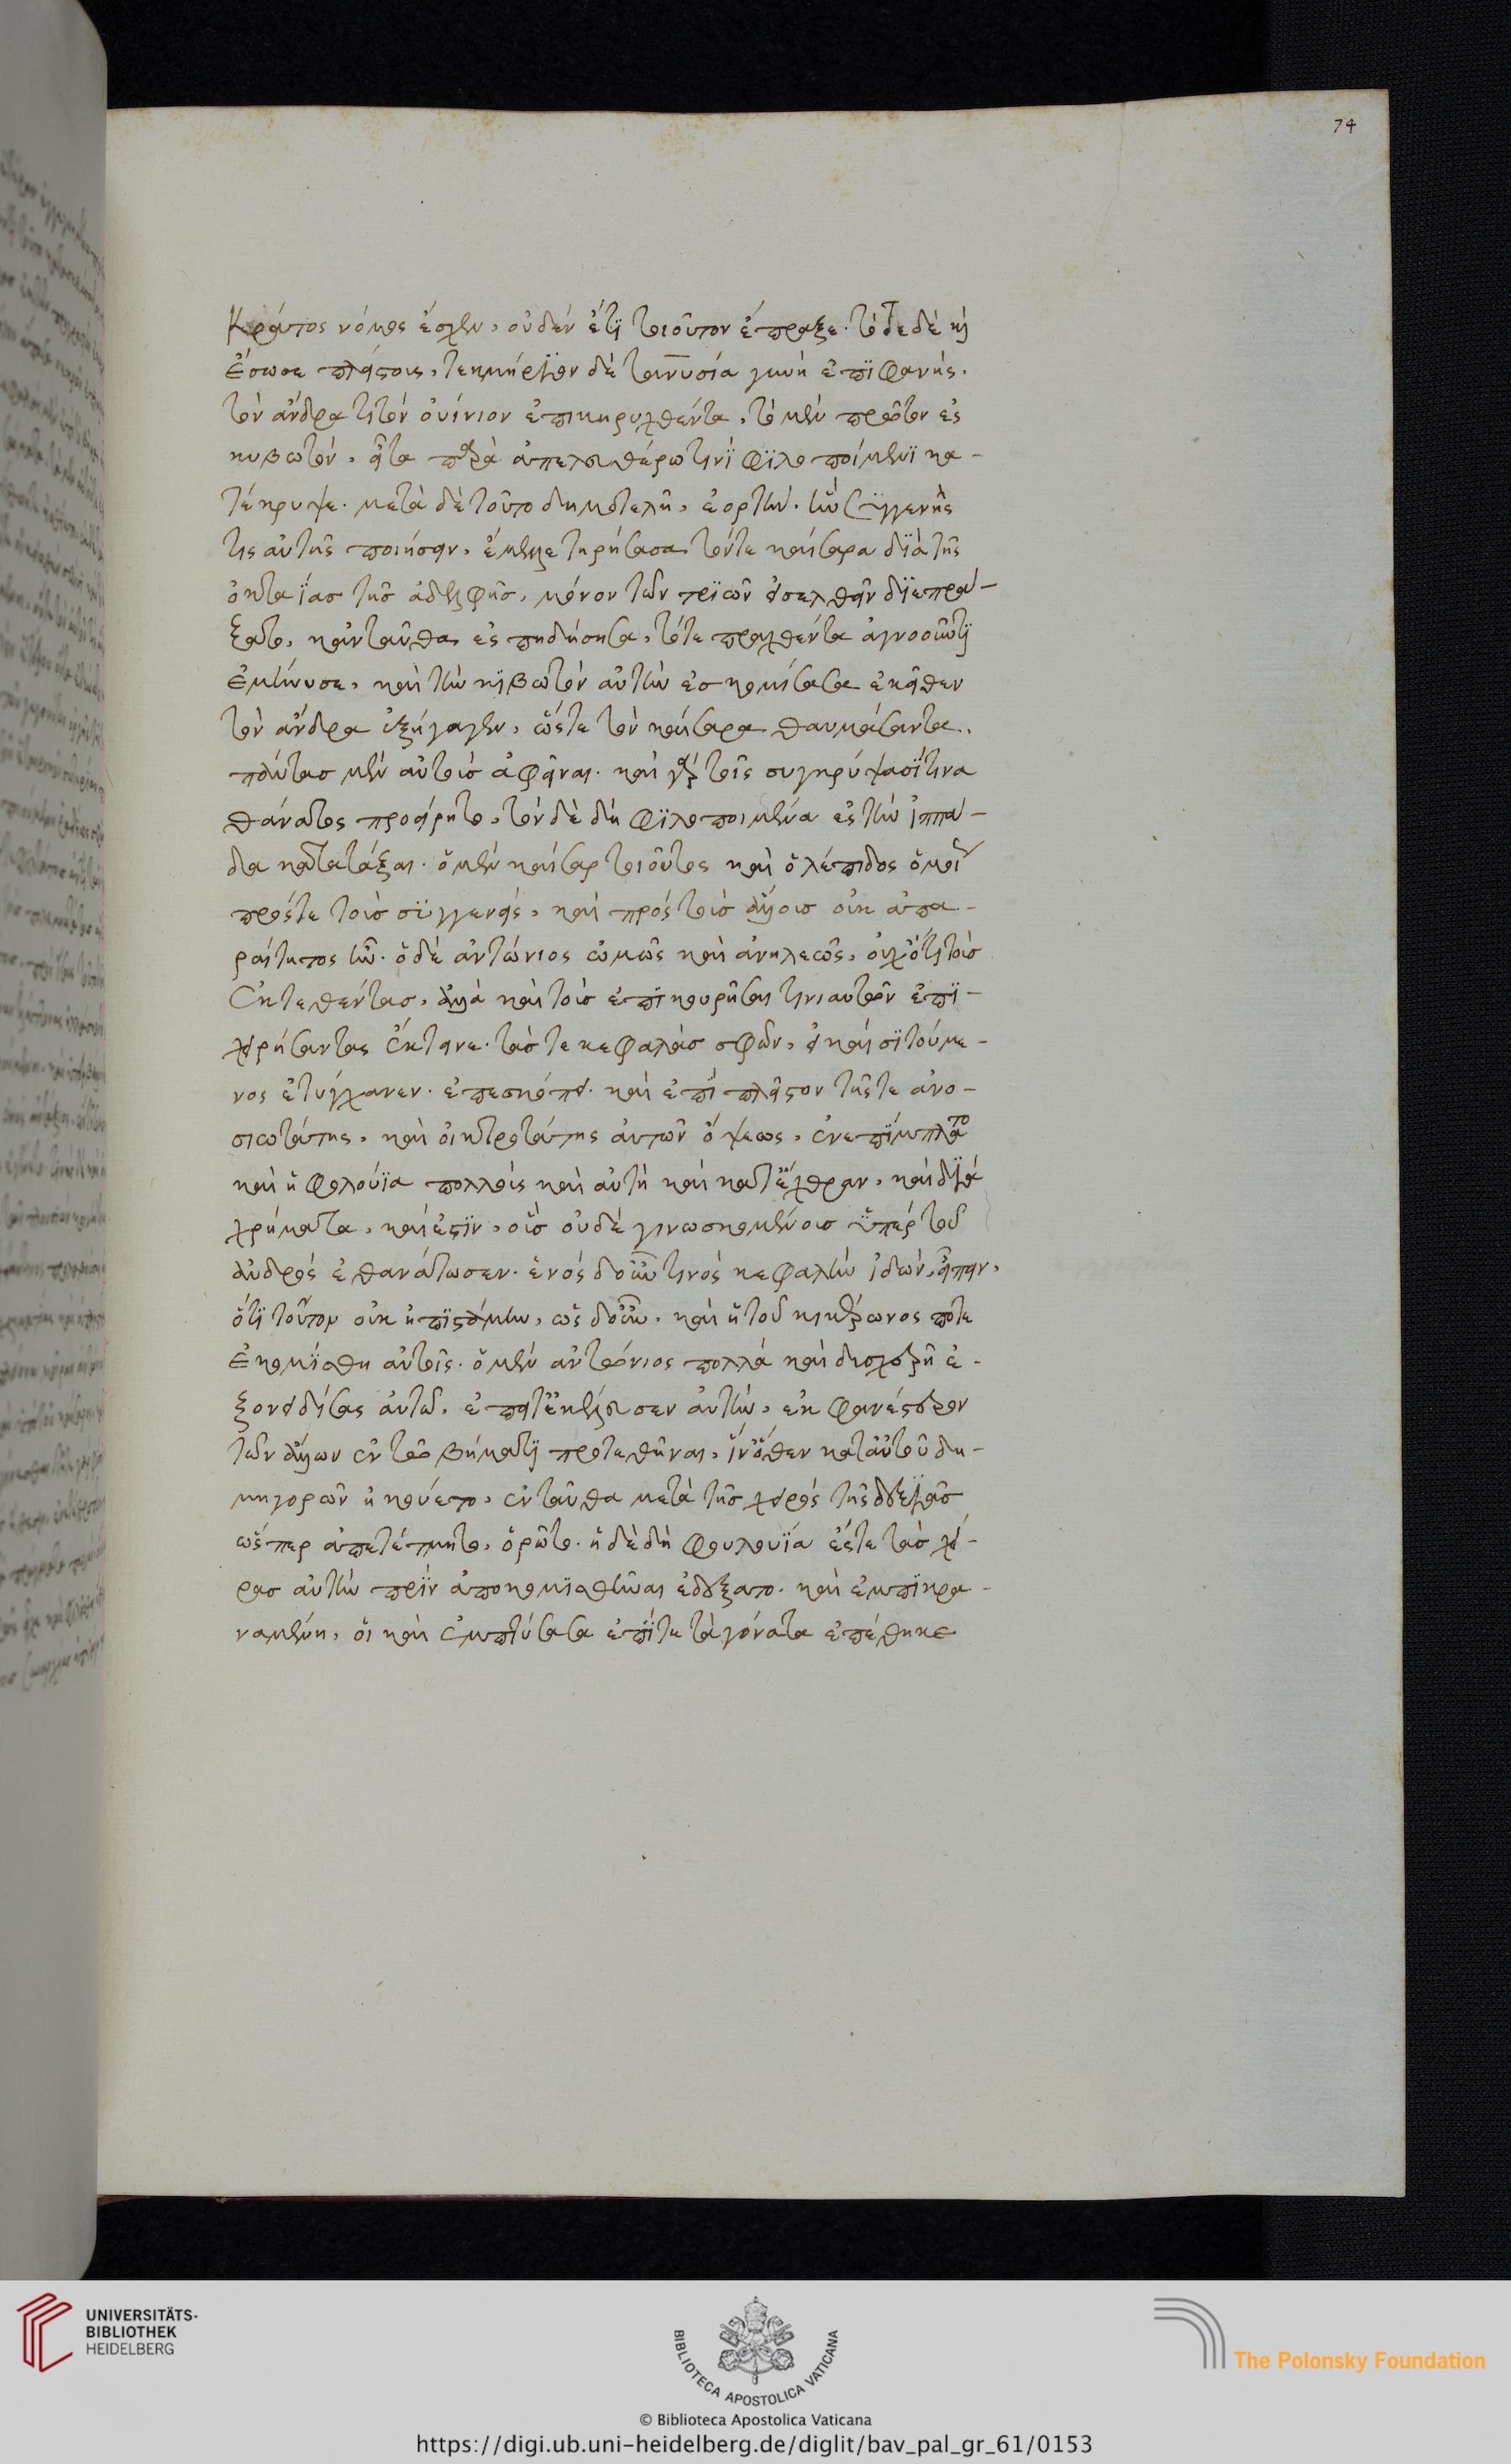 74
Κράτος νόμος ἔσχεν, οὐδὲν ἔτι τοιοῦτον ἔπραξε. τότε δὲ καὶ
ἔσωσε πλείστους, τεκμήριον δὲ τανυσία γυνὴ ἐπιφανὴς.
τὸν ἄνδρα τίτον οὐίνιον ἐπικηρυχθέντα, τὸ μὲν πρῶτον ἐς
κιβωτὸν, εἶτα παρὰ ἀπελευθέρῳ τινὶ φιλοποίμενι κα-
τέκρυψε. μετὰ δὲ τοῦτο δημοτελῆ, ἑορτὴν. ἣν συγγενής
τις αὐτῆς ποιήσειν, ἔμελλε τηρήσασα τόν τε καίσαρα διὰ τῆς
ὀκταΐας τῆς ἀδελφῆς, μόνον τῶν τριῶν ἐσελθεῖν διεπρά-
ξατο, κἀνταῦθα ἐς πηδήσασα, τό τε πραχθέντα ἀγνοοῦντι
ἐμήνυσε, καὶ τὴν κιβωτὸν αὐτὴν ἐσκομίσασα ἐκεῖθεν
τὸν ἄνδρα ἐξήγαγεν, ὥστε τὸν καίσαρα θαυμάσαντα.
πάντας μὲν αὐτοὺς ἀφεῖναι. καὶ γὰρ τοῖς συγκρύψασί τινα
θάνατος προείρητο, τὸν δὲ δὴ φιλοποιμένα ἐς τὴν ἱππά-
δα κατατάξαι. ὁ μὲν καίσαρ τοιοῦτος καὶ ὁ λέπιδος ὁμοῦ
πρός τε τοὺς συγγενεῖς, καὶ πρὸς τοὺς ἄλλους οὐκ ἀπα-
ραίτητος ἦν. ὁ δὲ ἀντώνιος ὠμῶς καὶ ἀνηλεῶς, οὐχ ὅτι τοὺς
ἐκτεθέντας, ἀλλὰ καὶ τοὺς ἐπικουρῆσαι τινι αὐτῶν ἐπι-
χειρήσαντας ἔκτεινε. τάς τε κεφαλὰς σφῶν, εἰ καὶ σιτούμε-
νος ἐτύγχανεν. ἐπεσκόπει. καὶ ἐπὶ πλεῖστον τῆς τε ἀνο-
σιωτάτης, καὶ οἰκτροτάτης αὐτῶν ὄψεως, ἐνεπίμπλατο
καὶ ἡ φολουΐα πολλοὺς καὶ αὐτὴ καὶ κατ᾽ ἔχθραν, καὶ διὰ
χρήματα, καὶ ἔστιν, οὓς οὐδὲ γινωσκομένους ὑπὲρ τοῦ
ἀνδρὸς ἐθανάτωσεν. ἑνὸς δοῦν τινὸς κεφαλὴν ἰδὼν, εἶπεν,
ὅτι τοῦτον οὐκ ἠπιστάμην, ὡς δοὖν. καὶ ἡ τοῦ κικέρωνος ποτε
ἐκομίσθη αὐτοῖς. ὁ μὲν ἀντώνιος πολλὰ καὶ δυσχερῆ ἐ-
ξονειδίσας αὐτῷ, ἔπειτ᾽ ἐκέλευσεν αὐτὴν, ἐκφανέστερον
τῶν ἄλλων ἐν τῷ βήματι προτεθῆναι, ἵν᾽ ὅθεν κατ᾽ αὐτοῦ δη-
μηγορῶν ἠκούετο, ἐνταῦθα μετὰ τῆς χειρὸς τῆς δεξιᾶς
ὥσπερ ἀπετέτμητο, ὁρῷτο. ἡ δὲ δὴ φουλουΐα ἔς τε τὰς χεῖ-
ρας αὐτὴν πρὶν ἀποκομισθῆναι ἐδέξατο. καὶ ἐμπικρα-
ναμένη, οἱ καὶ ἐμπτύσασα ἐπί τε τὰ γόνατα ἐπέθηκε
UNIVERSITÄTS-
BIBLIOTHEK
HEIDELBERG
BIBLIOTECA APOSTOLICA VATICANA
The Polonsky Foundation
© Biblioteca Apostolica Vaticana
https://digi.ub.uni-heidelberg.de/diglit/bav_pal_gr_61/0153